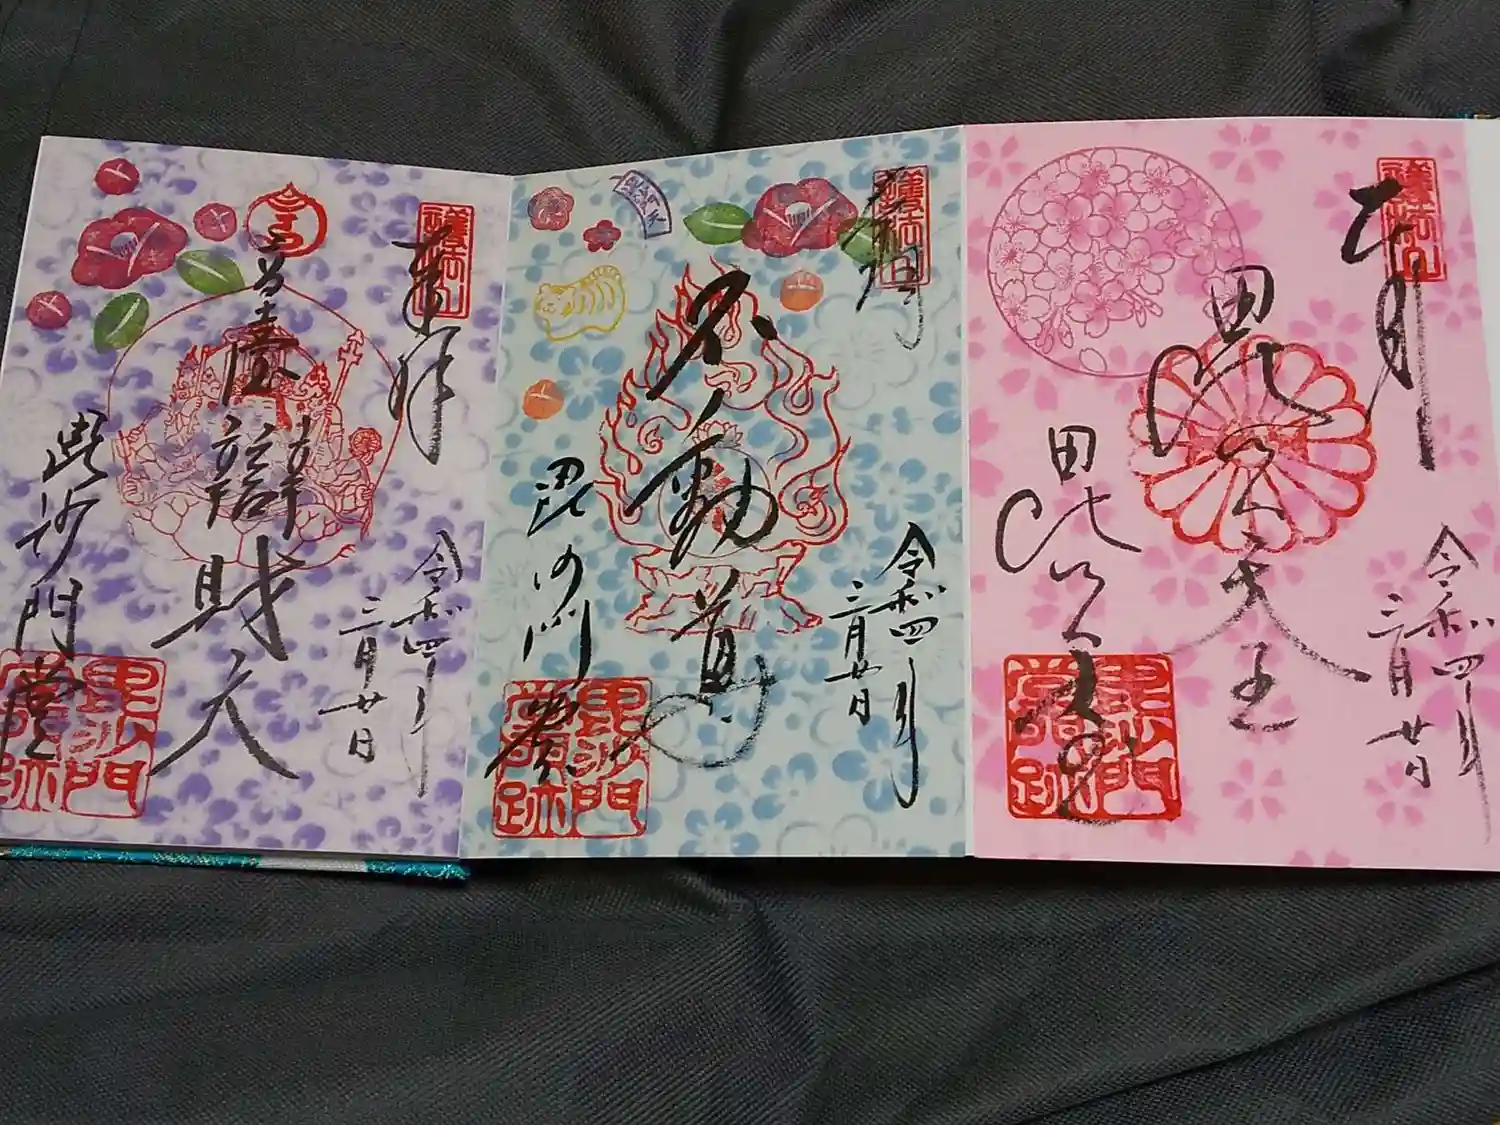 奉拝
令和四年
三月廿日
毘沙門天王
毘沙門堂
護法山
奉拝
令和四年
三月廿日
不動尊
毘沙門堂
護法山
毘沙門堂門跡
奉拝
令和四年
三月廿日
高臺辯財天
毘沙門堂
護法山
毘沙門堂門跡